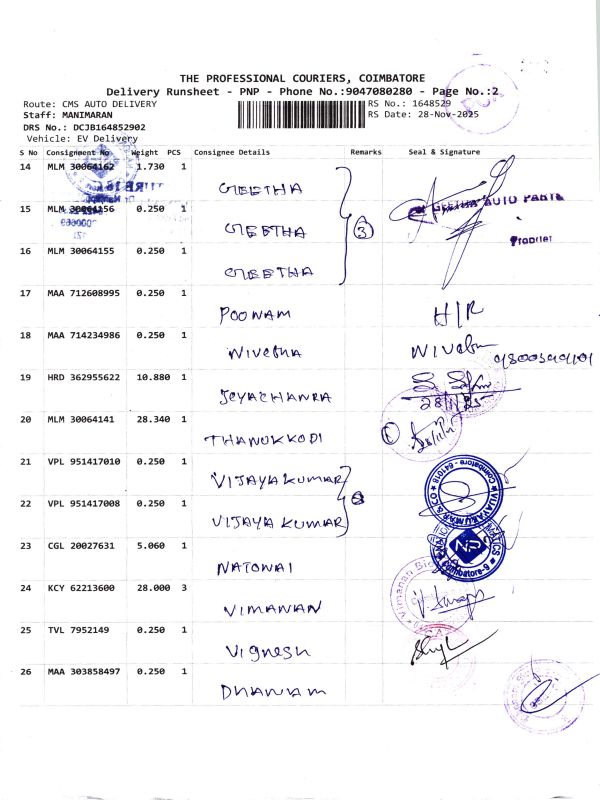 THE PROFESSIONAL COURIERS, COIMBATORE
Delivery Runsheet - PNP - Phone No.:9047080280 - Page No.:2
Route: CMS AUTO DELIVERY
RS No.: 1648529
Staff: MANIMARAN
RS Date: 28-Nov-2025
DRS No.: DCJB164852902
Vehicle: EV Delivery
S No Consignment No Weight PCS Consignee Details Remarks Seal & Signature
14 MLM 30064162 1.730 1 GEETHA
GEETHA AUTO PARTS
15 MLM 30064156 0.250 1 GEETHA 3
Proprietor
16 MLM 30064155 0.250 1 GEETHA
17 MAA 712608995 0.250 1 POONAM H/R
18 MAA 714234986 0.250 1 Nivetha
19 HRD 362955622 10.880 1 JEYACHANRA
28/11/25
20 MLM 30064141 28.340 1 THANUKKODI
21 VPL 951417010 0.250 1 VIJAYAKUMAR
VIJAYAKUMAR & CO Coimbatore - 641018
22 VPL 951417008 0.250 1 VIJAYAKUMAR 2
23 CGL 20027631 5.060 1 NATONAI
NP Coimbatore-9
24 KCY 62213600 28.000 3 VIMANAN
25 TVL 7952149 0.250 1 Vignesh
26 MAA 303858497 0.250 1 DHANAM